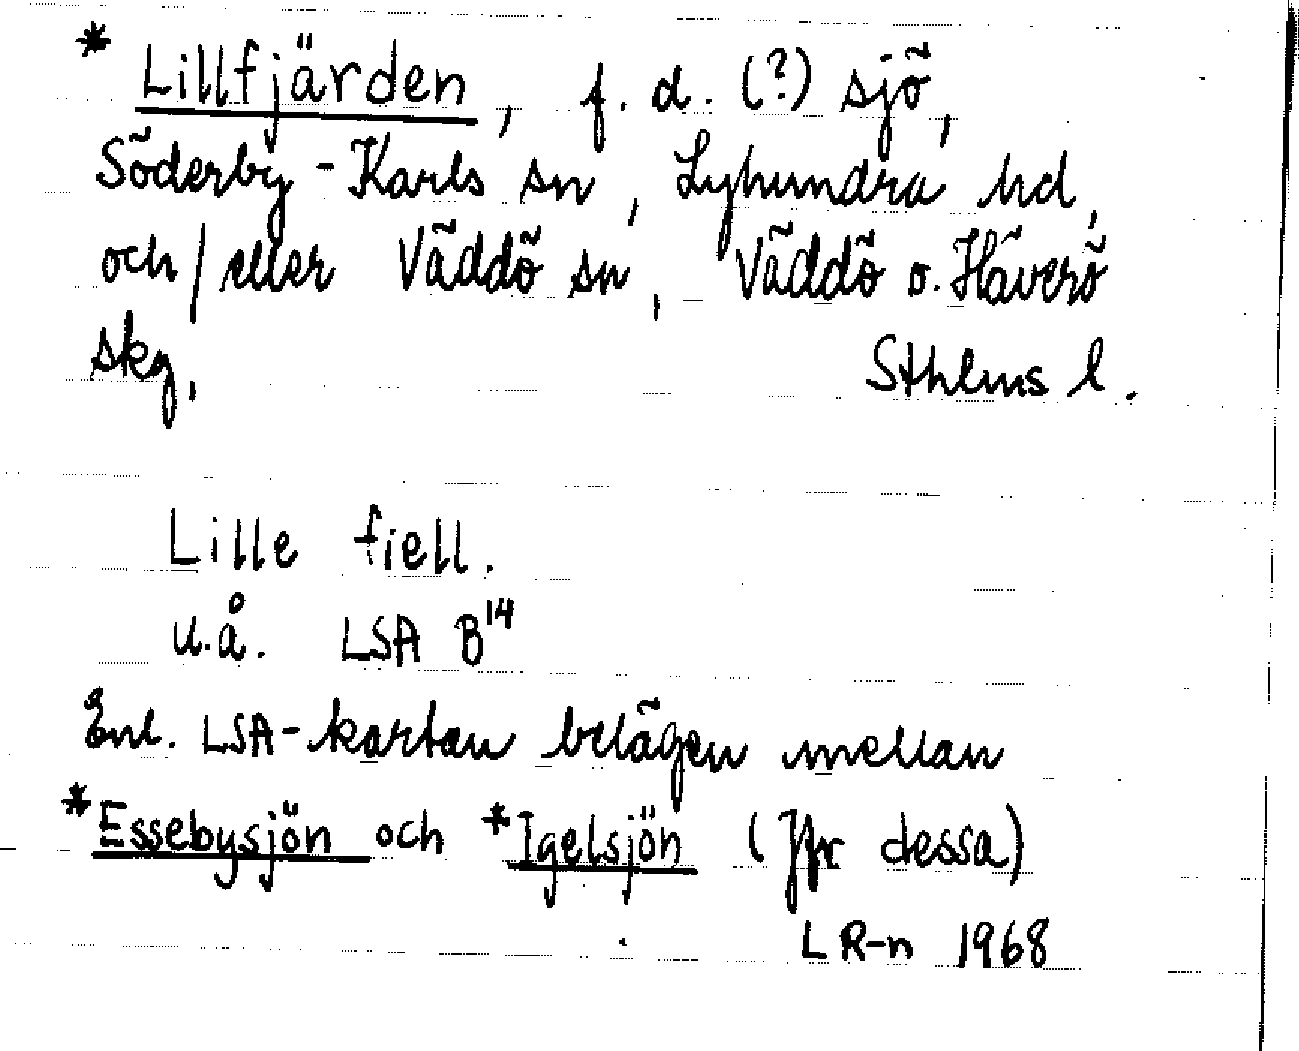 * Lillfjärden, f. d. (?) sjö,
Söderby-Karls sn, Lyhundra hd,
och/eller Väddö sn, Väddö o. Häverö
skg,
Sthlms l.
Lille fiell.
u.å. LSA B¹⁴
Enl. LSA-kartan belägen mellan
*Essebysjön och *Igelsjön (Jfr dessa)
LR-n 1968